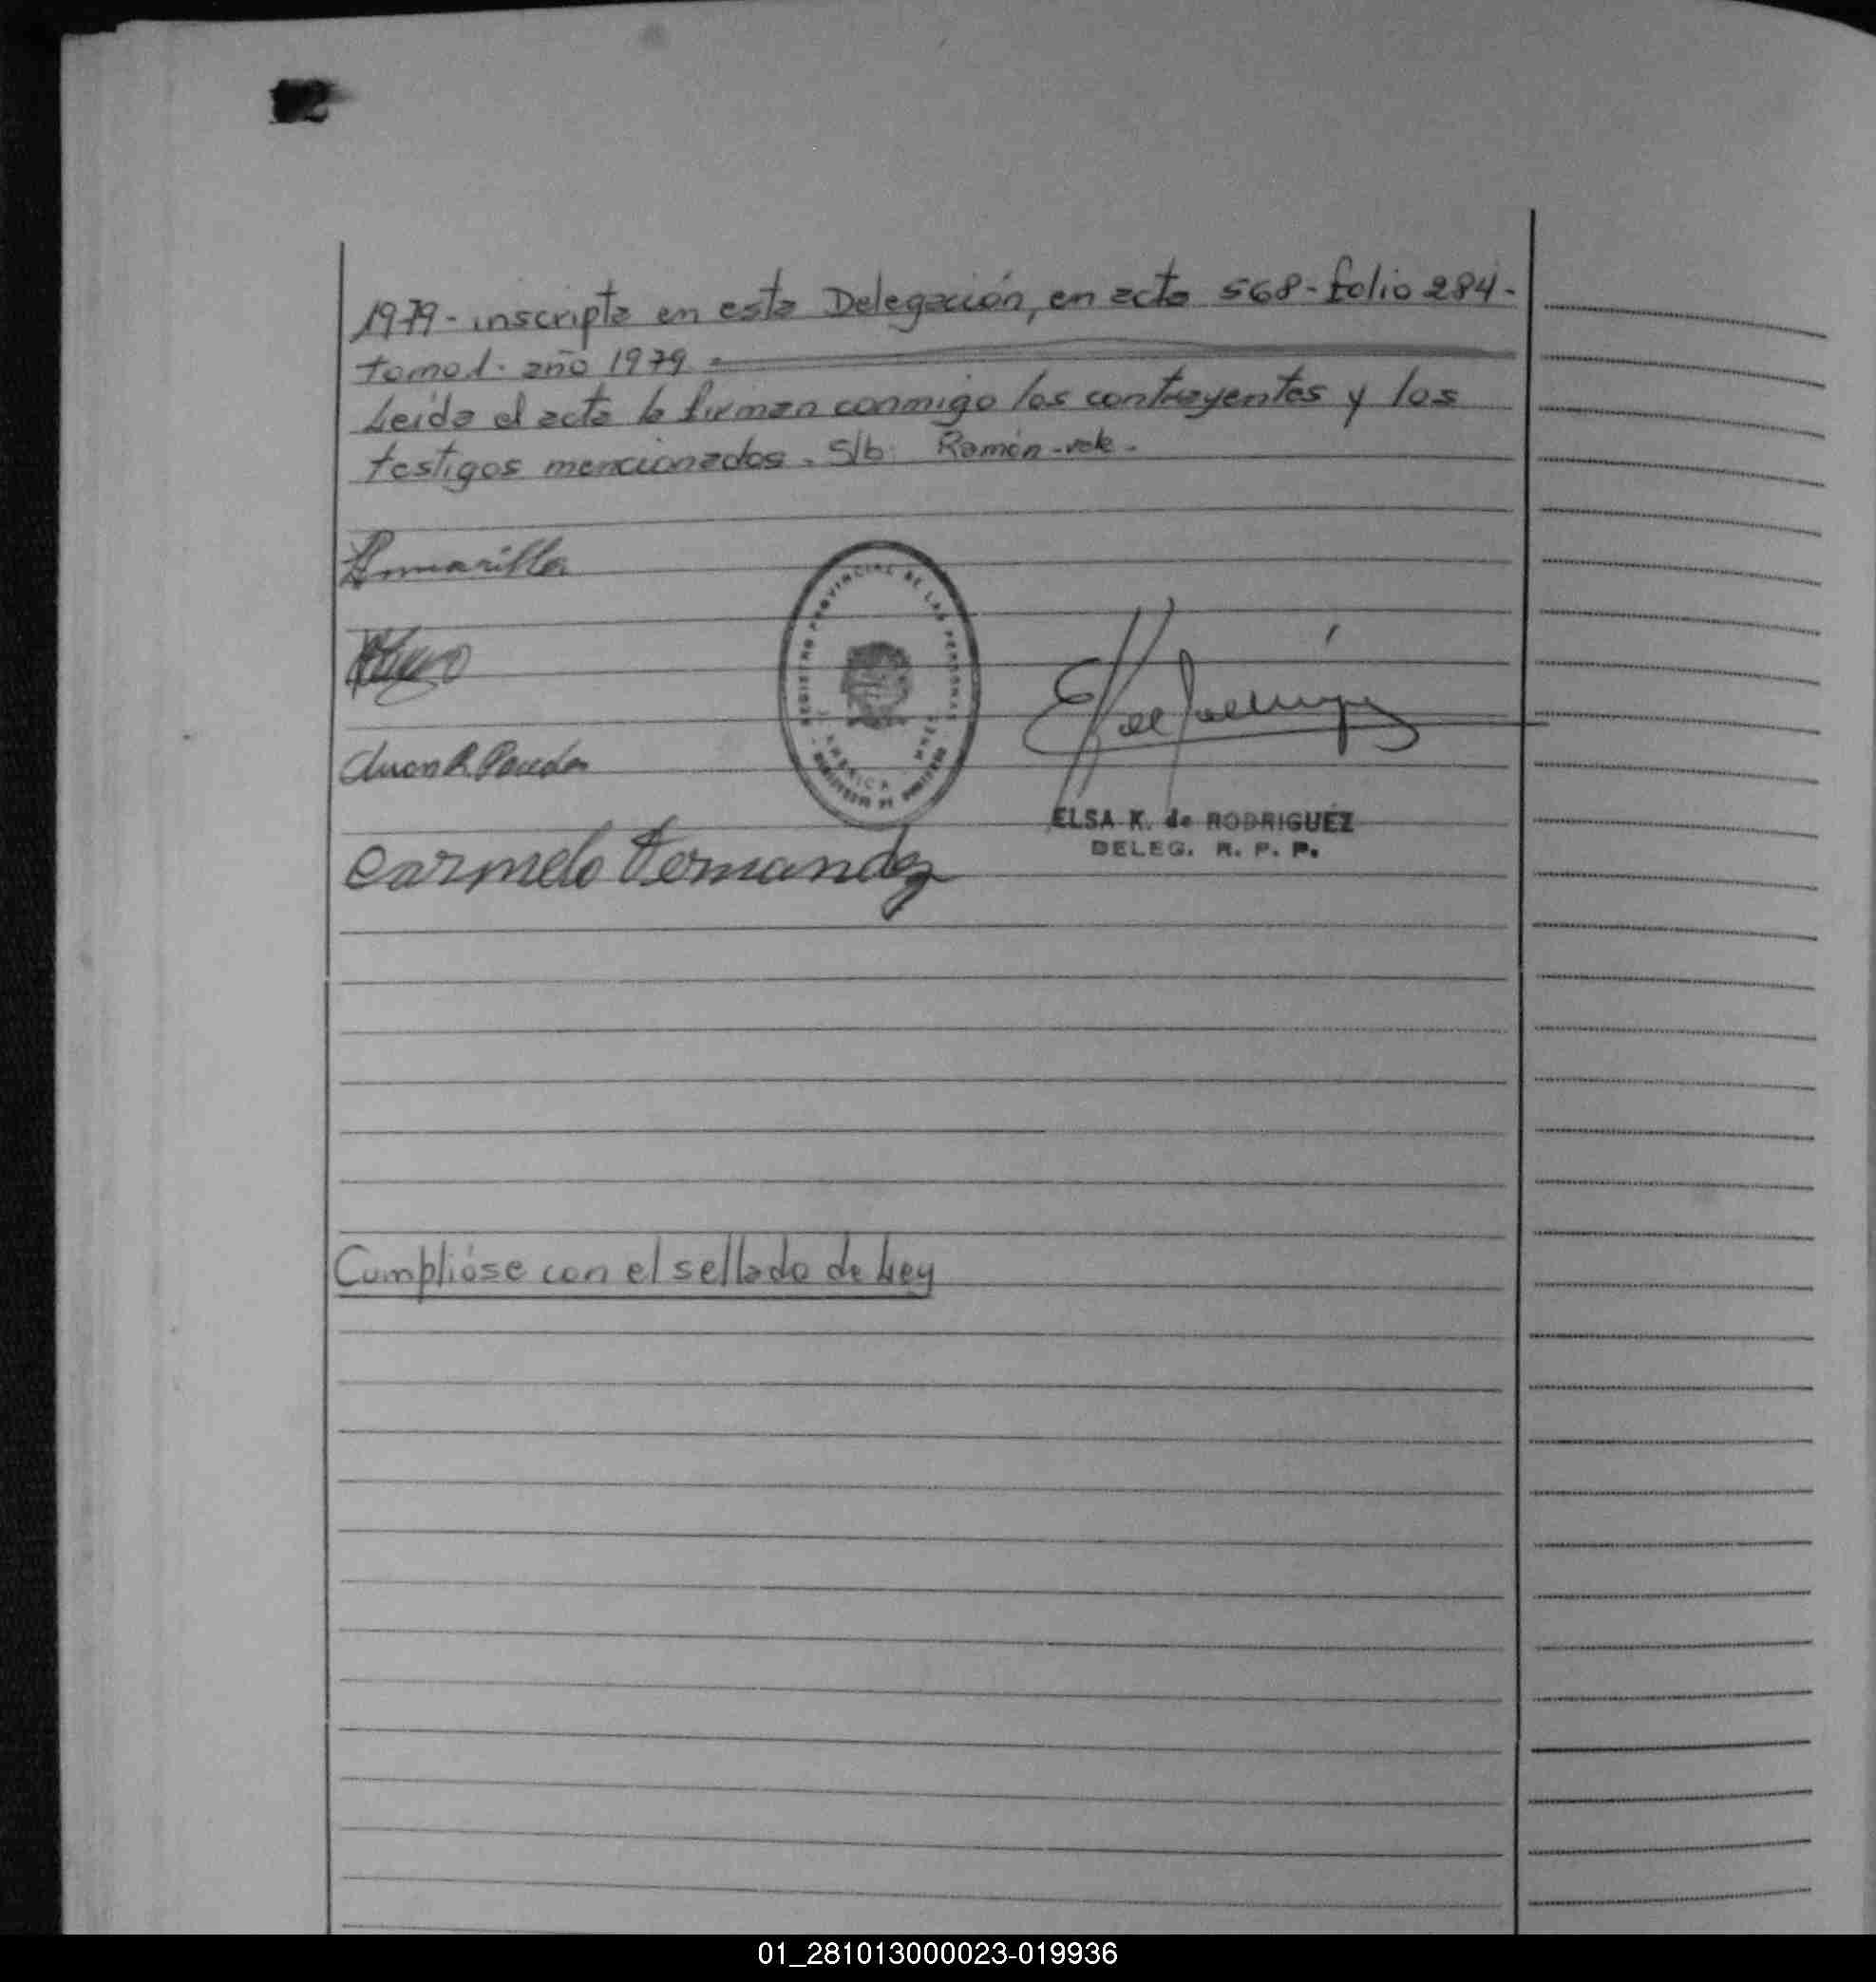 1979- inscripta en esta Delegación, en acta 568- folio 284-
tomo 1- año 1979 -
Leída el acta la firman conmigo los contrayentes y los
testigos mencionados. S/b: Ramón - vale -
REGISTRO PROVINCIAL DE LAS PERSONAS
Juan R
Carmelo Fernandez
ELSA K. de RODRIGUEZ
DELEG. R. P. P.
Cumplióse con el sellado de Ley
01_281013000023-019936